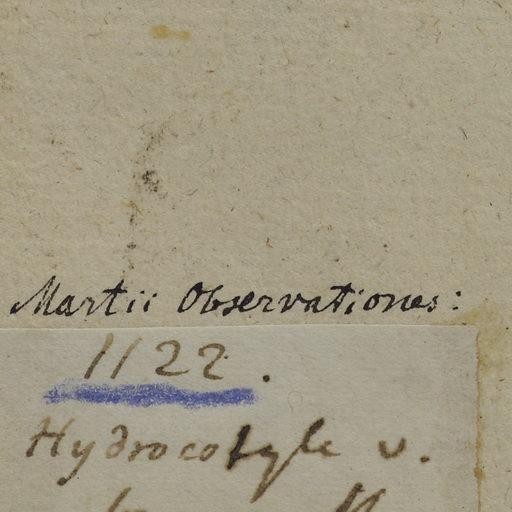 Martii Observationes:
1122.
Hydrocotyle v.